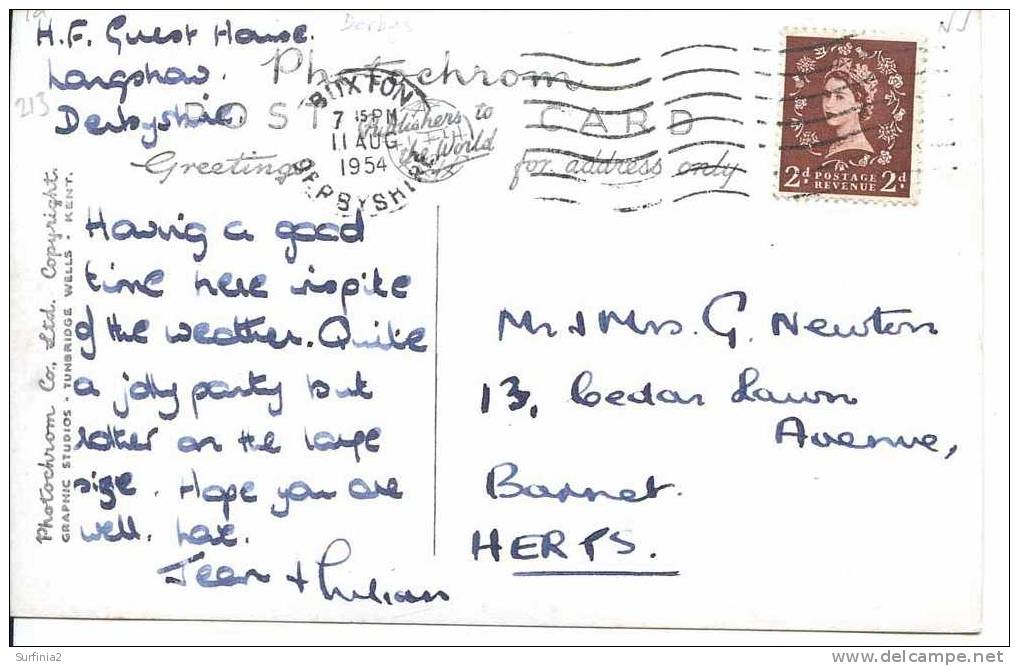 H.F. Guest House.
Longshaw.
Derbyshire.
Derbys
213
Photochrom
POST CARD
Publishers to
the World
Greetings
for address only
BUXTON
7 15 PM
11 AUG
1954
DERBYSHIRE
2d POSTAGE 2d
REVENUE
Photochrom Co., Ltd. Copyright.
GRAPHIC STUDIOS · TUNBRIDGE WELLS · KENT.
Having a good
time here inspite
of the weather. Quite
a jolly party but
rather on the large
size. Hope you are
well. Love.
Jean + Lilian
Mr & Mrs. G Newton
13, Cedar Lawn
Avenue,
Barnet.
HERTS.
Surfinia2
delcampe.net